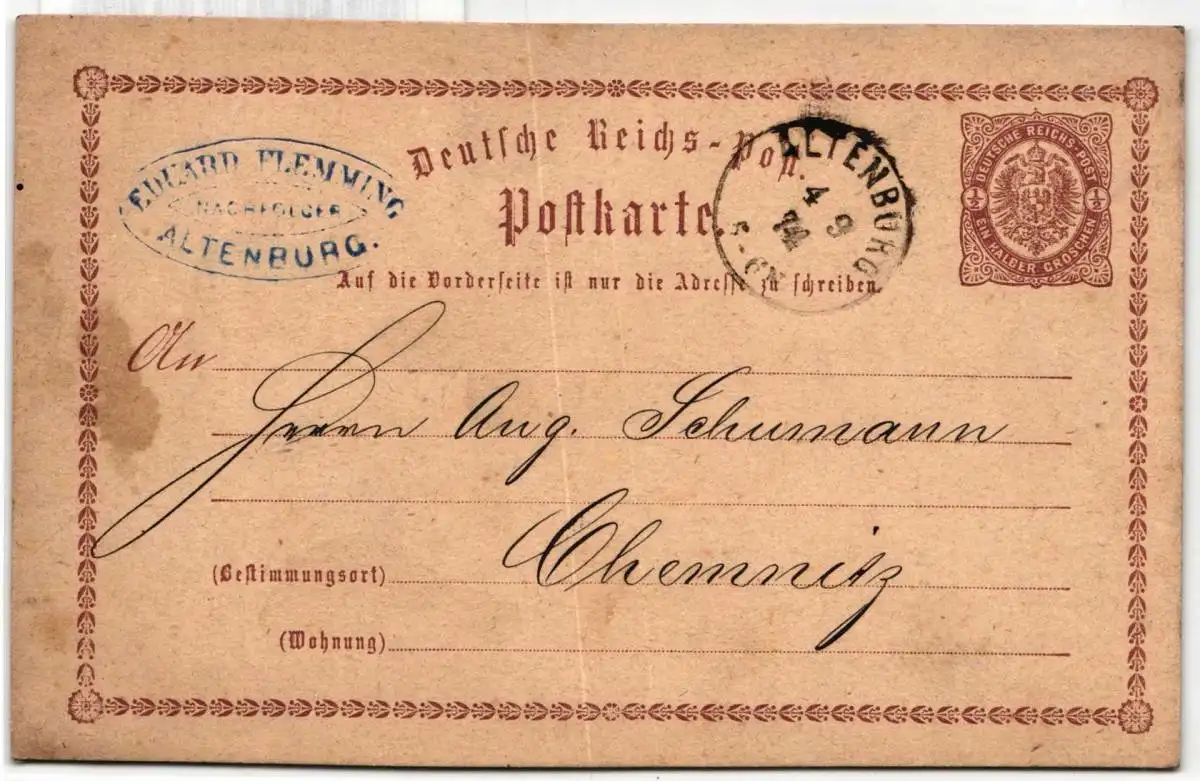 EDUARD FLEMMING
NACHFOLGER
ALTENBURG.
Deutsche Reichs-Post.
Postkarte.
Auf die Vorderseite ist nur die Adresse zu schreiben.
ALTENBURG
4 9
74
5-6N
DEUTSCHE REICHS-POST
½ ½
EIN HALBER GROSCHEN
An
Herrn Aug. Schumann
Chemnitz
(Bestimmungsort)
(Wohnung)